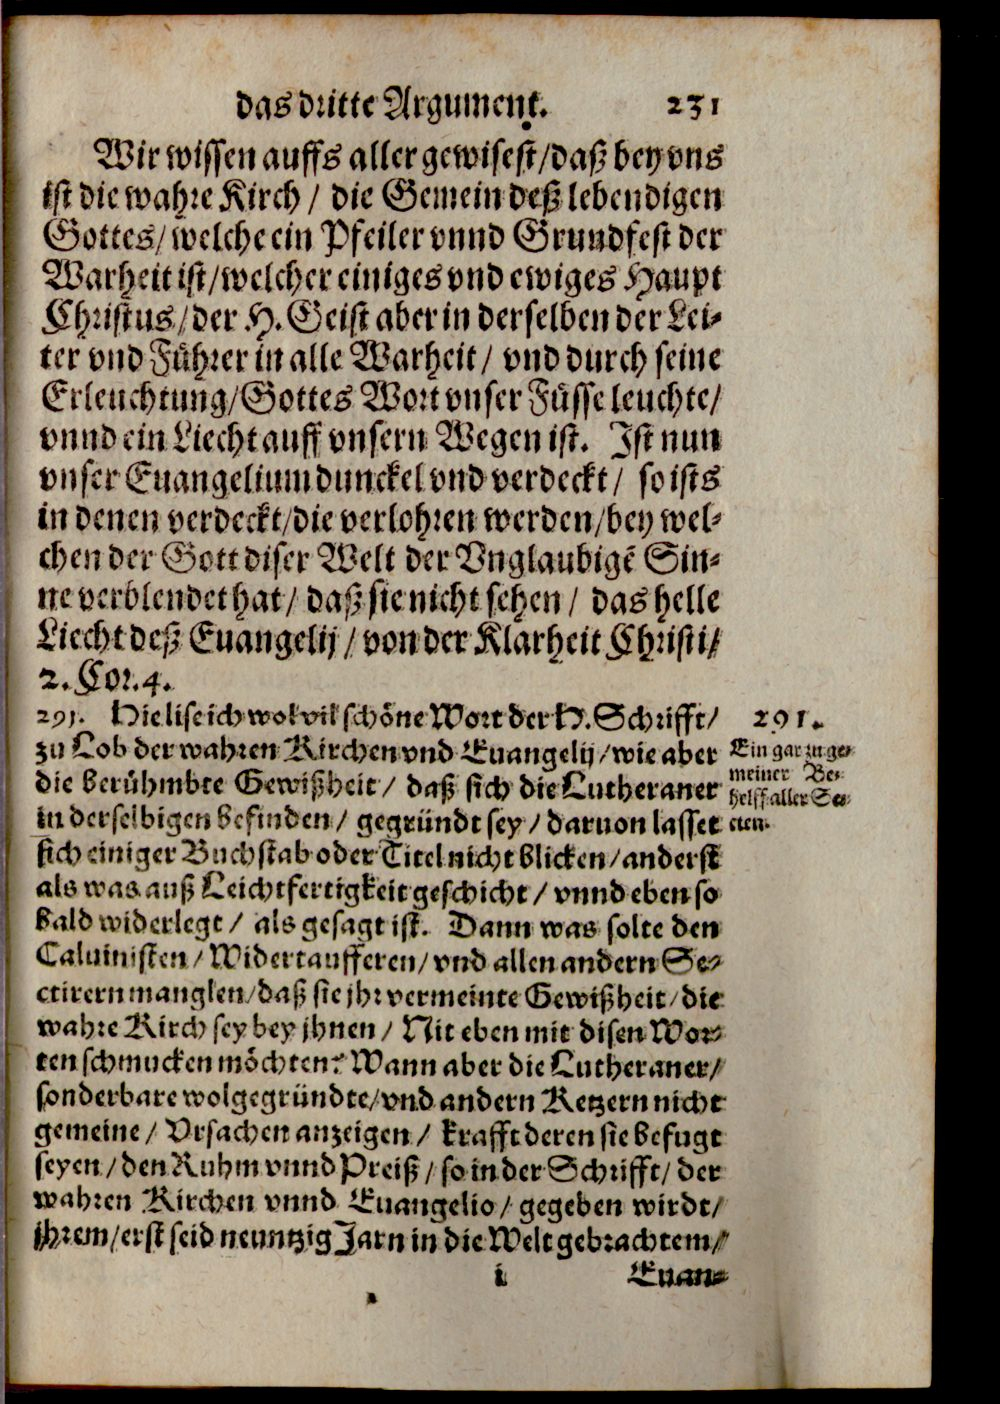 das dritte Argument. 231
Wir wissen auffs aller gewisest/daß bey vns
ist die wahre Kirch / die Gemein deß lebendigen
Gottes/welche ein Pfeiler vnnd Grundfest der
Warheit ist/welcher einiges vnd ewiges Haupt
Christus/der H. Geist aber in derselben der Lei-
ter vnd Führer in alle Warheit/ vnd durch seine
Erleuchtung/Gottes Wort vnser Füsse leuchte/
vnnd ein Liecht auff vnsern Wegen ist. Ist nun
vnser Euangelium dunckel vnd verdeckt/ so ists
in denen verdeckt/die verlohren werden/bey wel-
chen der Gott diser Welt der Vnglaubigē Sin-
ne verblendet hat/ daß sie nicht sehen / das helle
Liecht deß Euangelij/von der Klarheit Christi/
2. Cor. 4.
291. Hie lise ich wol vil schöne Wort der H. Schrifft/
zu Lob der wahren Kirchen vnd Euangelij/wie aber
die berühmbte Gewißheit/ daß sich die Lutheraner
in derselbigen befinden/ gegründt sey / daruon lasset
sich einiger Buchstab oder Titel nicht blicken/anderst
als was auß Leichtfertigkeit geschicht/ vnnd eben so
bald widerlegt/ als gesagt ist. Dann was solte den
Caluinisten/Widertaufferen/vnd allen andern Se-
ctirern manglen/daß sie jhr vermeinte Gewißheit/die
wahre Kirch sey bey jhnen/ Nit eben mit disen Wor-
ten schmucken möchten? Wann aber die Lutheraner/
sonderbare wolgegründte/vnd andern Ketzern nicht
gemeine/ Vrsachen anzeigen/ krafft deren sie befugt
seyen/den Ruhm vnnd Preiß/so in der Schrifft/ der
wahren Kirchen vnnd Euangelio/ gegeben wirdt/
jhrem/erst seid neuntzig Jarn in die Welt gebrachtem/
i Euan-
291.
Ein gar zu ge-
meiner Be-
helff aller Se-
cten.